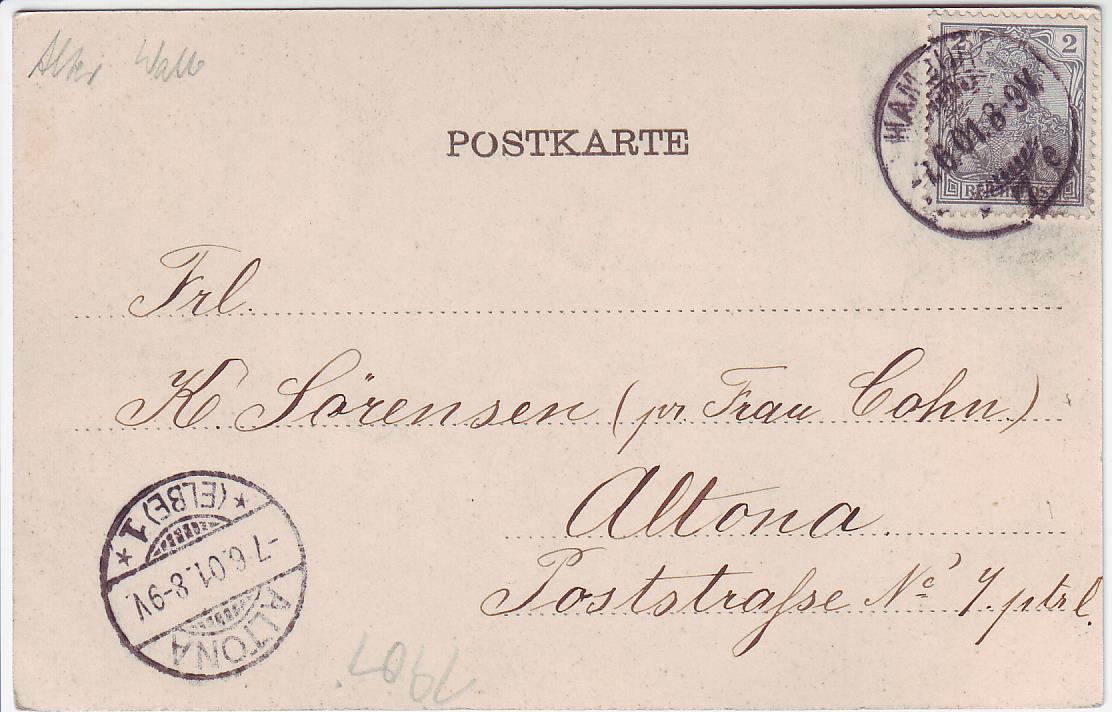 Alter Wall
2 2
HAMBURG
-7.6.01.8-9V.
7 e
REICHSPOST
POSTKARTE
Frl.
K. Sörensen (pr Frau Cohn)
Altona.
Poststraſse No 7. ptrl.
* (ELBE) 1 *
-7.6.01.8-9V
ALTONA
1901